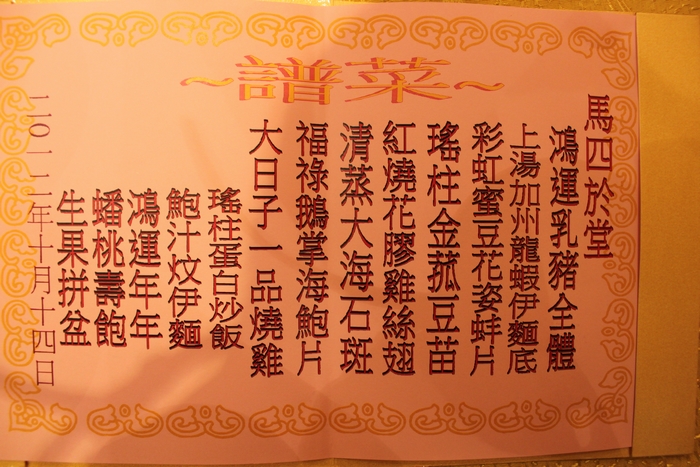 ~菜譜~
馬四於堂
鴻運乳豬全體
上湯加州龍蝦伊麵底
彩虹蜜豆花姿蚌片
瑤柱金菰豆苗
紅燒花膠雞絲翅
清蒸大海石斑
福祿鵝掌海鮑片
大日子一品燒雞
瑤柱蛋白炒飯
鮑汁炆伊麵
鴻運年年
蟠桃壽飽
生果拼盆
二零一二年十月十四日